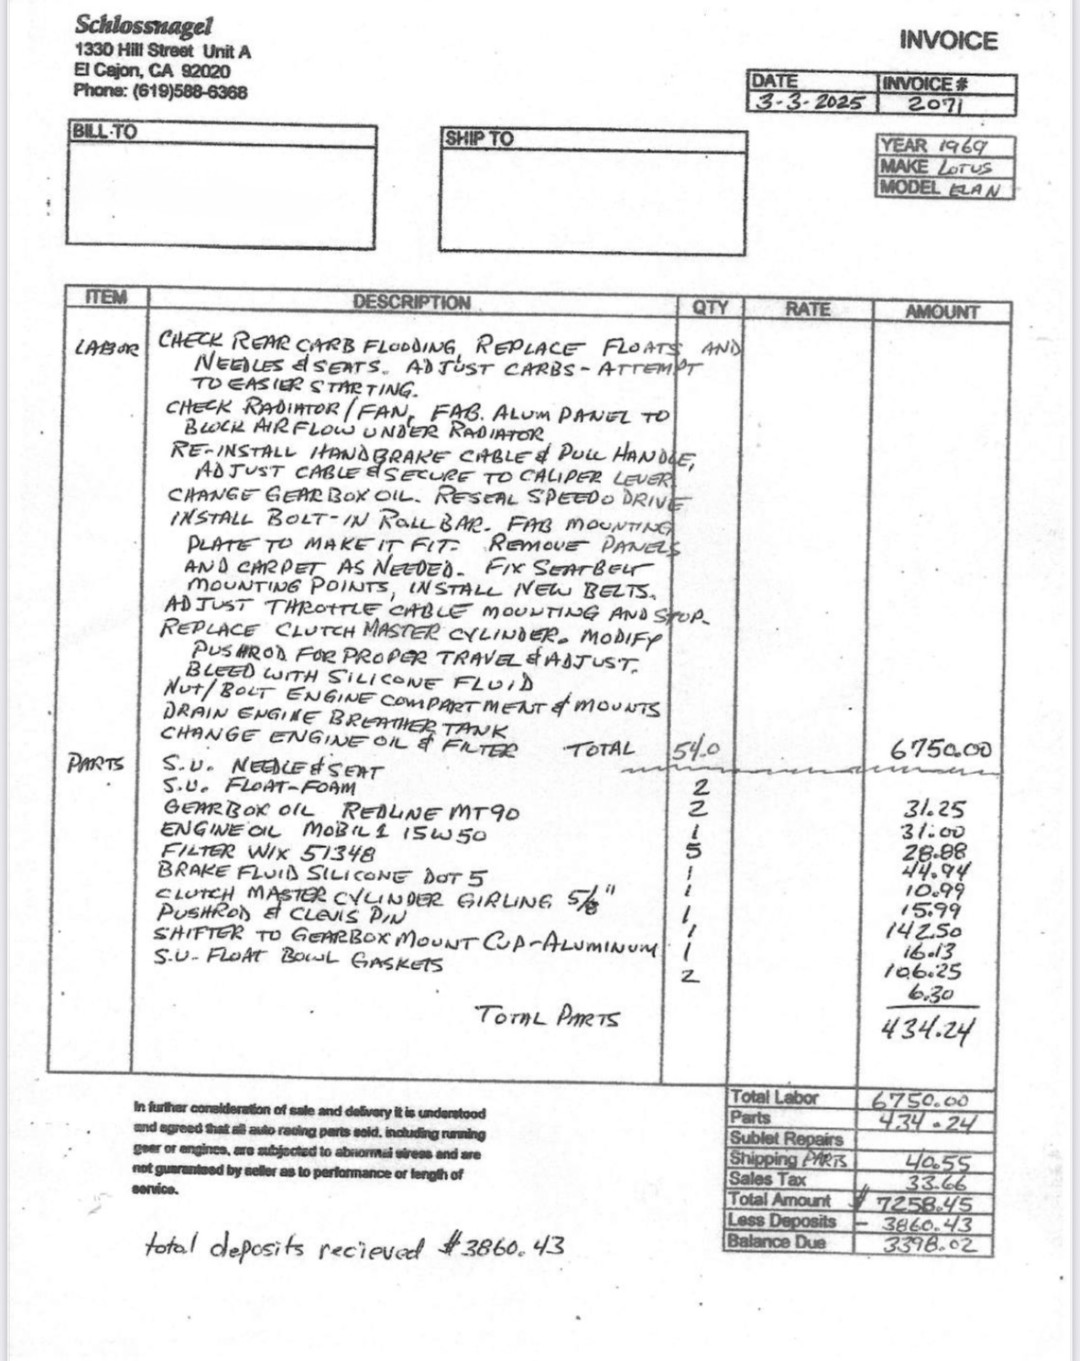 Schlossnagel
1330 Hill Street Unit A
El Cajon, CA 92020
Phone: (619)588-6368
INVOICE
DATE INVOICE #
3-3-2025 2071
BILL TO
SHIP TO
YEAR 1969
MAKE LOTUS
MODEL ELAN
ITEM DESCRIPTION QTY RATE AMOUNT
LABOR CHECK REAR CARB FLOODING, REPLACE FLOATS AND
NEEDLES & SEATS. ADJUST CARBS - ATTEMPT
TO EASIER STARTING.
CHECK RADIATOR/FAN, FAB. ALUM PANEL TO
BLOCK AIRFLOW UNDER RADIATOR
RE-INSTALL HANDBRAKE CABLE & PULL HANDLE,
ADJUST CABLE & SECURE TO CALIPER LEVER
CHANGE GEARBOX OIL. RESEAL SPEEDO DRIVE
INSTALL BOLT-IN ROLL BAR. FAB MOUNTING
PLATE TO MAKE IT FIT. REMOVE PANELS
AND CARPET AS NEEDED. FIX SEATBELT
MOUNTING POINTS, INSTALL NEW BELTS.
ADJUST THROTTLE CABLE MOUNTING AND STOP.
REPLACE CLUTCH MASTER CYLINDER. MODIFY
PUSHROD FOR PROPER TRAVEL & ADJUST.
BLEED WITH SILICONE FLUID
NUT/BOLT ENGINE COMPARTMENT & MOUNTS
DRAIN ENGINE BREATHER TANK
CHANGE ENGINE OIL & FILTER TOTAL 54.0 6750.00
PARTS S.U. NEEDLE & SEAT 2 31.25
S.U. FLOAT-FOAM 2 31.00
GEARBOX OIL REDLINE MT90 1 28.88
ENGINE OIL MOBIL 1 15W50 5 44.94
FILTER WIX 51348 1 10.99
BRAKE FLUID SILICONE DOT 5 1 15.99
CLUTCH MASTER CYLINDER GIRLING 5/8" 1 142.50
PUSHROD & CLEVIS PIN 1 16.13
SHIFTER TO GEARBOX MOUNT CUP-ALUMINUM 1 106.25
S.U. FLOAT BOWL GASKETS 2 6.30
TOTAL PARTS 434.24
In further consideration of sale and delivery it is understood
and agreed that all auto racing parts sold, including running
gear or engines, are subjected to abnormal stress and are
not guaranteed by seller as to performance or length of
service.
Total Labor 6750.00
Parts 434.24
Sublet Repairs
Shipping PARTS 40.55
Sales Tax 33.66
Total Amount $ 7258.45
Less Deposits - 3860.43
Balance Due 3398.02
total deposits recieved $3860.43